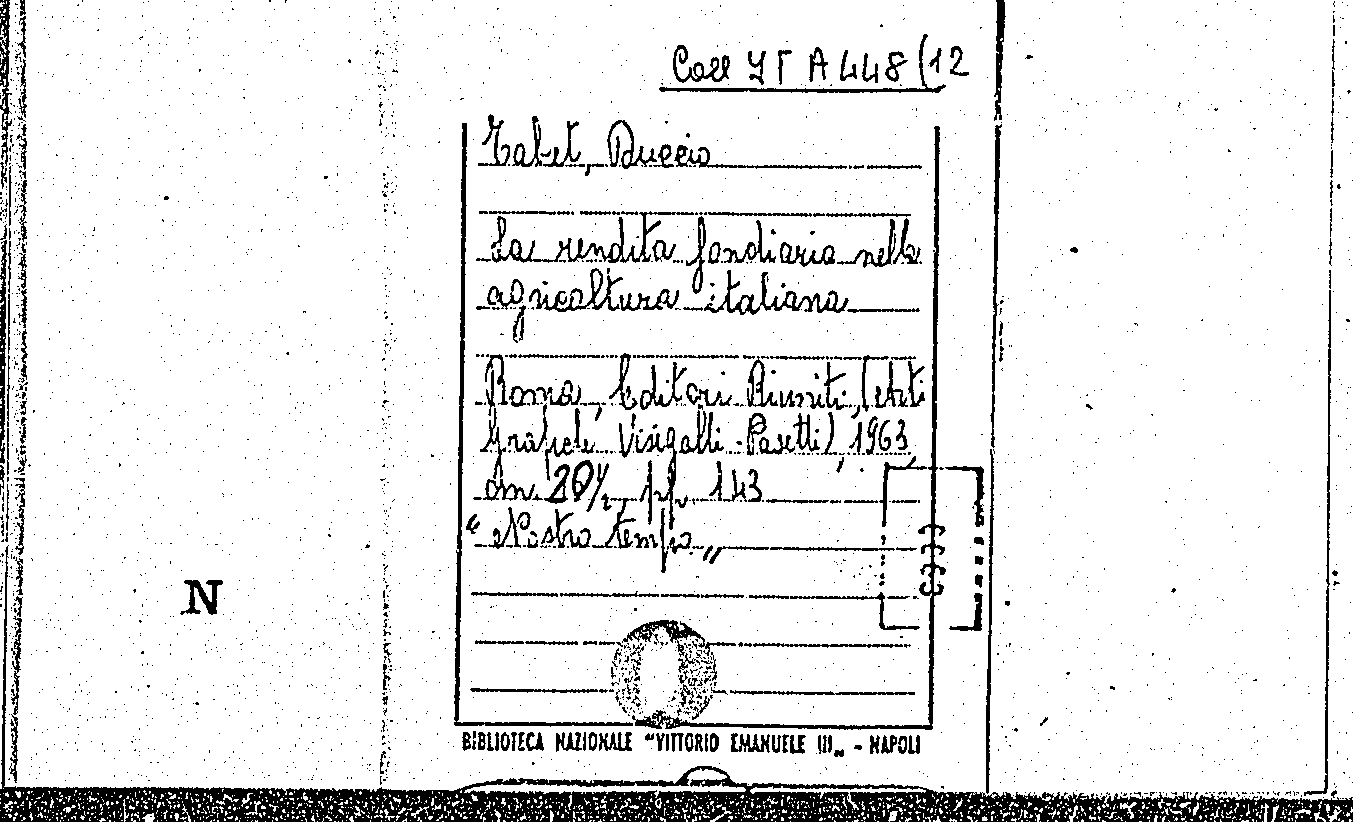 Coll YΓ A 448 (12
Tabet, Duccio
La rendita fondiaria nella
agricoltura italiana
Roma, Editori Riuniti, (Arti
Grafiche Visigalli-Pasetti), 1963,
cm 20½, pp. 143
"Nostro tempo„
N
BIBLIOTECA NAZIONALE "VITTORIO EMANUELE III„ - NAPOLI